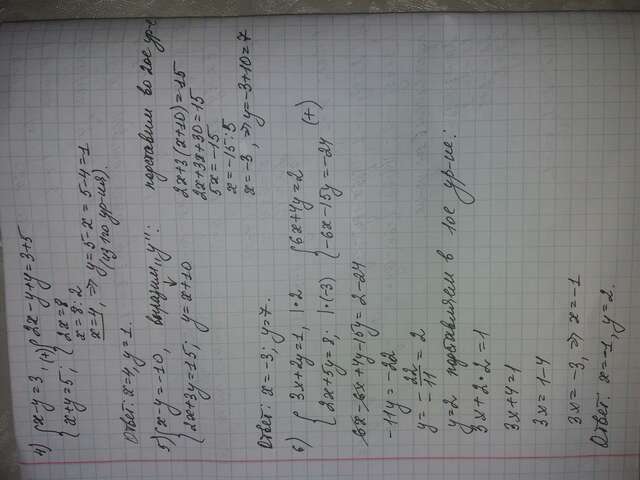 4) { x-y=3, (+) { 2x-y+y=3+5
{ x+y=5; { 2x=8
x=8:2
x=4, => y=5-x=5-4=1
(из 1го ур-ия).
Ответ: x=4, y=1.
5) { x-y=-10, выразим „y":
{ 2x+3y=15; y=x+10
подставим во 2ое ур-е
2x+3(x+10)=15
2x+3x+30=15
5x=-15
x=-15:5
x=-3, => y=-3+10=7
Ответ: x=-3; y=7.
6) { 3x+2y=1, |·2 { 6x+4y=2
{ 2x+5y=8; |·(-3) { -6x-15y=-24 (+)
6x-6x+4y-15y=2-24
-11y=-22
y=-22/-11=2
y=2 подставляем в 1ое ур-ие:
3x+2·2=1
3x+4=1
3x=1-4
3x=-3, => x=-1
Ответ: x=-1, y=2.